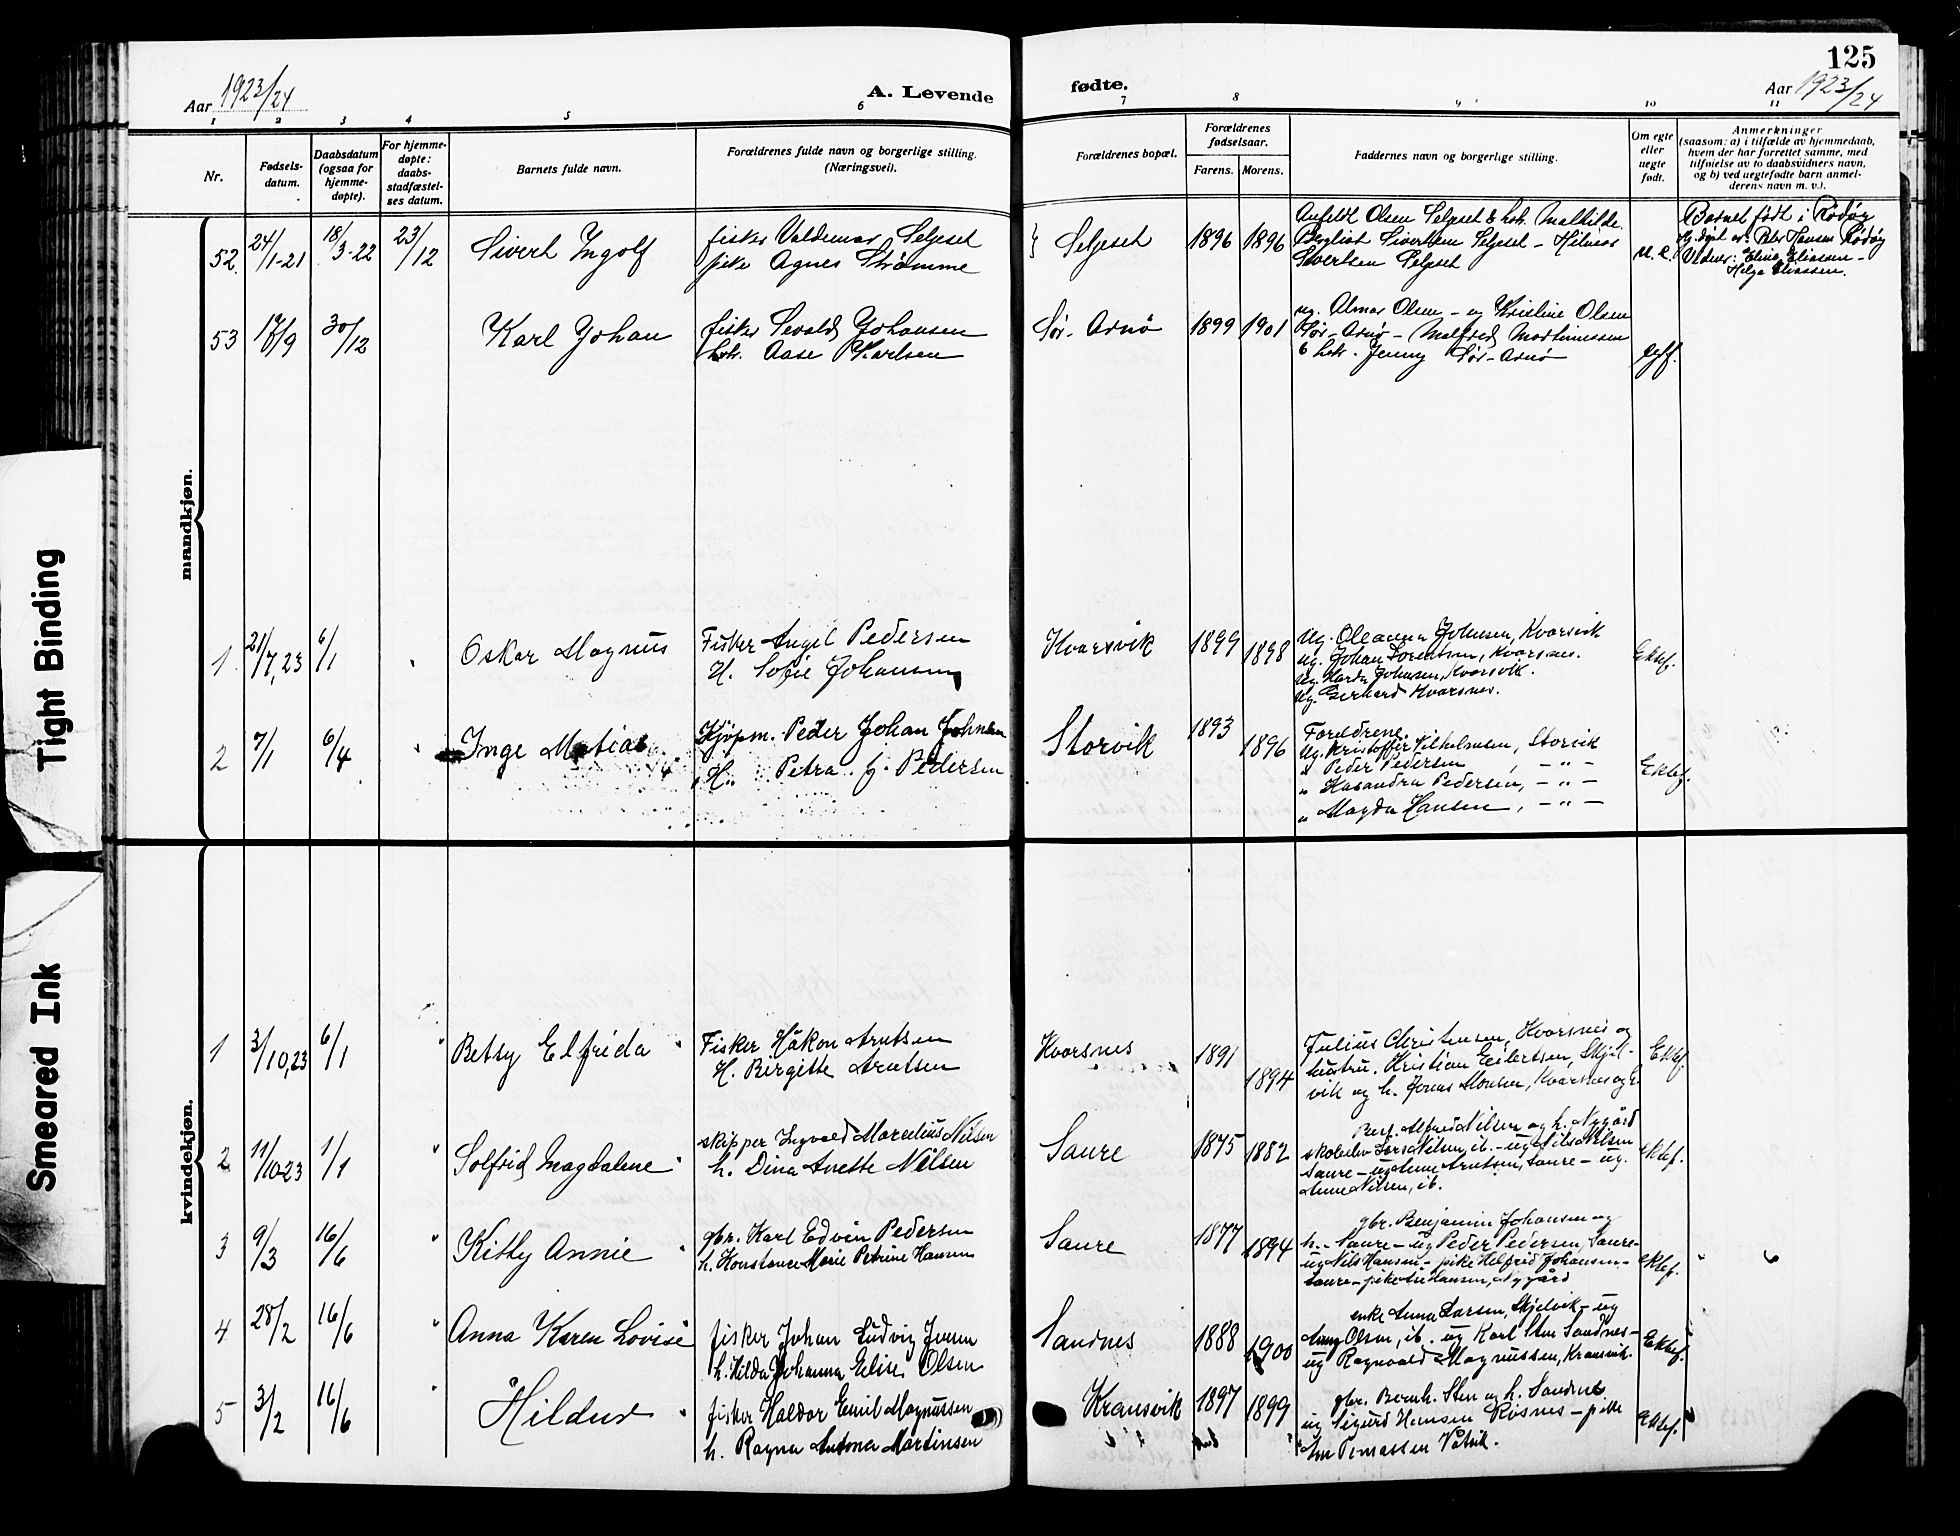 125
Aar 1923/24
A. Levende
fødte.
Aar 1923/24
1 2 3 4 5 6 7 8 9 10 11
Nr.
Fødsels-
datum.
Daabsdatum
(ogsaa for
hjemme-
døpte).
For hjemme-
døpte:
daabs-
stadfæstel-
ses datum.
Barnets fulde navn.
Forældrenes fulde navn og borgerlige stilling.
(Næringsvei).
Forældrenes bopæl.
Forældrenes
fødselsaar.
Farens. Morens.
Faddernes navn og borgerlige stilling.
Om egte
eller
uegte
født.
Anmerkninger
(saasom: a) i tilfælde av hjemmedaab,
hvem der har forrettet samme, med
tilføielse av to daabsvidners navn,
og b) ved uegtefødte barn anmel-
derens navn m. v.).
mandkjøn.
52. 24/1-21 18/3-22 23/12 Sivert Ingolf
fisker Valdemar Seljeset
pike Agnes Strømme
Seljeset 1896 1896
Olsen Seljeset & hst. Mathilde
Bergliot Sivertsen Seljeset - Hilmar
Sivertsen Seljeset
u.e.
Barnet født i Rødøy
Hj. døpt av: Peter Hansen Rødøy
Vidner: Eline Eliassen -
Helga Eliassen.
53 30/12 Karl Johan
fisker Sevald Johansen
hst. Aase Karlsen
Sør-Arnø 1899 1901
ug. Almar Olsen - ug Kristine Olsen
Sør-Arnø - Malfred Martinussen
& hst. Jenny Sør-Arnø
egf.
1 21/7,23 6/1 Oskar Magnus
Fisker Angel Pedersen
H. Sofie Johansen
Kvarsvik 1899 1898
Ug. Oleanna Johnsen, Kvarsvik
ug. Johan Lorentsen, Kvarsnes.
Ug. Harda Johnsen, Kvarsvik.
Ug. Gerhard Kvarsnes.
Ektef.
2 7/1 6/4 Inge Matias
Kjøpm. Peder Johan Johnsen
H. Petra f. Pedersen
Storvik 1893 1896
Foreldrene.
Ug. Kristoffer Vilhelmsen, Storvik
" Peder Pedersen, - " -
" Kasandra Pedersen, - " -
" Magda Hansen, - " -
Ektef.
kvindekjøn.
1 3/10,23 6/1 Betsy Elfrida
Fisker Håkon Arntsen
H. Bergitte Arntsen
Kvarsnes 1891 1894
Julius Christensen, Kvarsnes og
hustru. Kristian Eilertsen, Skjel-
vik og h. Jonas Monsen, Kvarsnes og h.
Ektef.
2 11/10-23 1/1 Solfrid Magdalene
skipper Ingvald Marcelius Nilsen
h. Dina Anette Nilsen
Saure 1875 1882
Alfred Nilsen og h. Nygård
Nilsen, ib. - ug Nils Nilsen
Saure - ug Anne Arntsen, Saure - ug.
Anne Nilsen, ib.
ektef.
3 9/3 16/6 Kitty Annie
gbr. Karl Edvin Pedersen
h. Konstance Marie Petrine Hansen
Saure 1877 1894
gbr. Benjamin Johansen og
h. - Saure - ug Peder Pedersen, Saure -
ug Nils Hansen - pike Helfrid Johansen -
Saure - pike Hansen, Nygård
ektef.
4 28/2 16/6 Anna Karen Lovise
fisker Johan Ludvig Jensen
h. Hilda Johanna Elise Olsen
Sandnes 1888 1900
enke Anna Larsen, Skjelvik - ug
Olsen, ib. - ug Karl Sten Sandnes -
ug Ragnvald Magnussen, Kransvik.
Ektef.
5 3/2 16/6 Hildur
fisker Haldor Emil Magnussen
h. Ragna Antona Martinsen
Kransvik 1897 1899
gbr. Bernh. Sten og h. Sandnes
ug Sigurd Hansen Røsnes - pike
Tomassen Våtvik.
Ektef.
Tight Binding
Smeared Ink